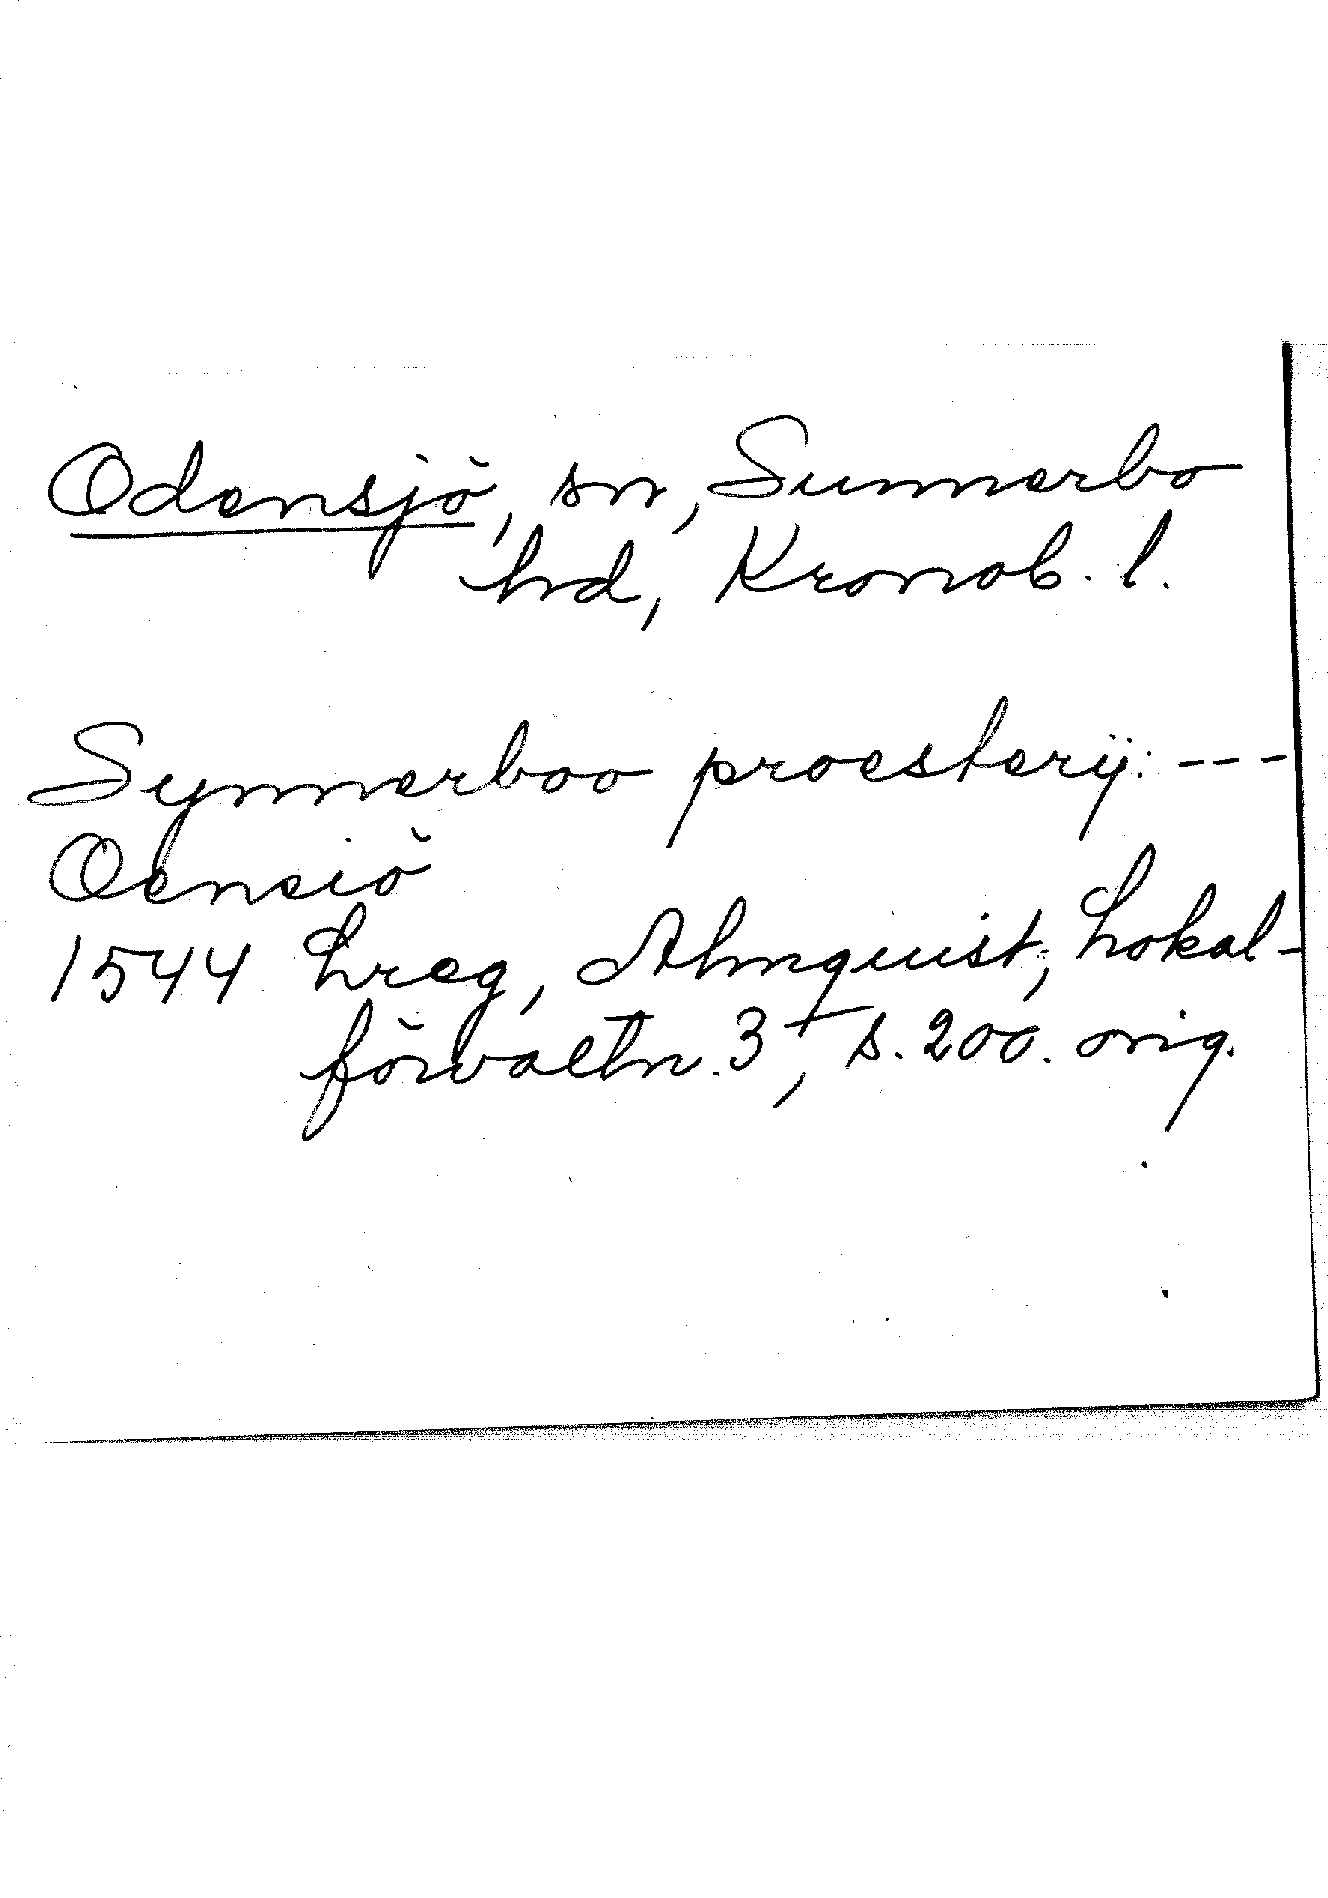 Odensjö, sn, Sunnerbo
hd, Kronob. l.
Synnerboo proesterij: ---
Oensiö
1544 Lreg, Almquist, Lokal-
förvaltn. 3+, s. 200. orig.